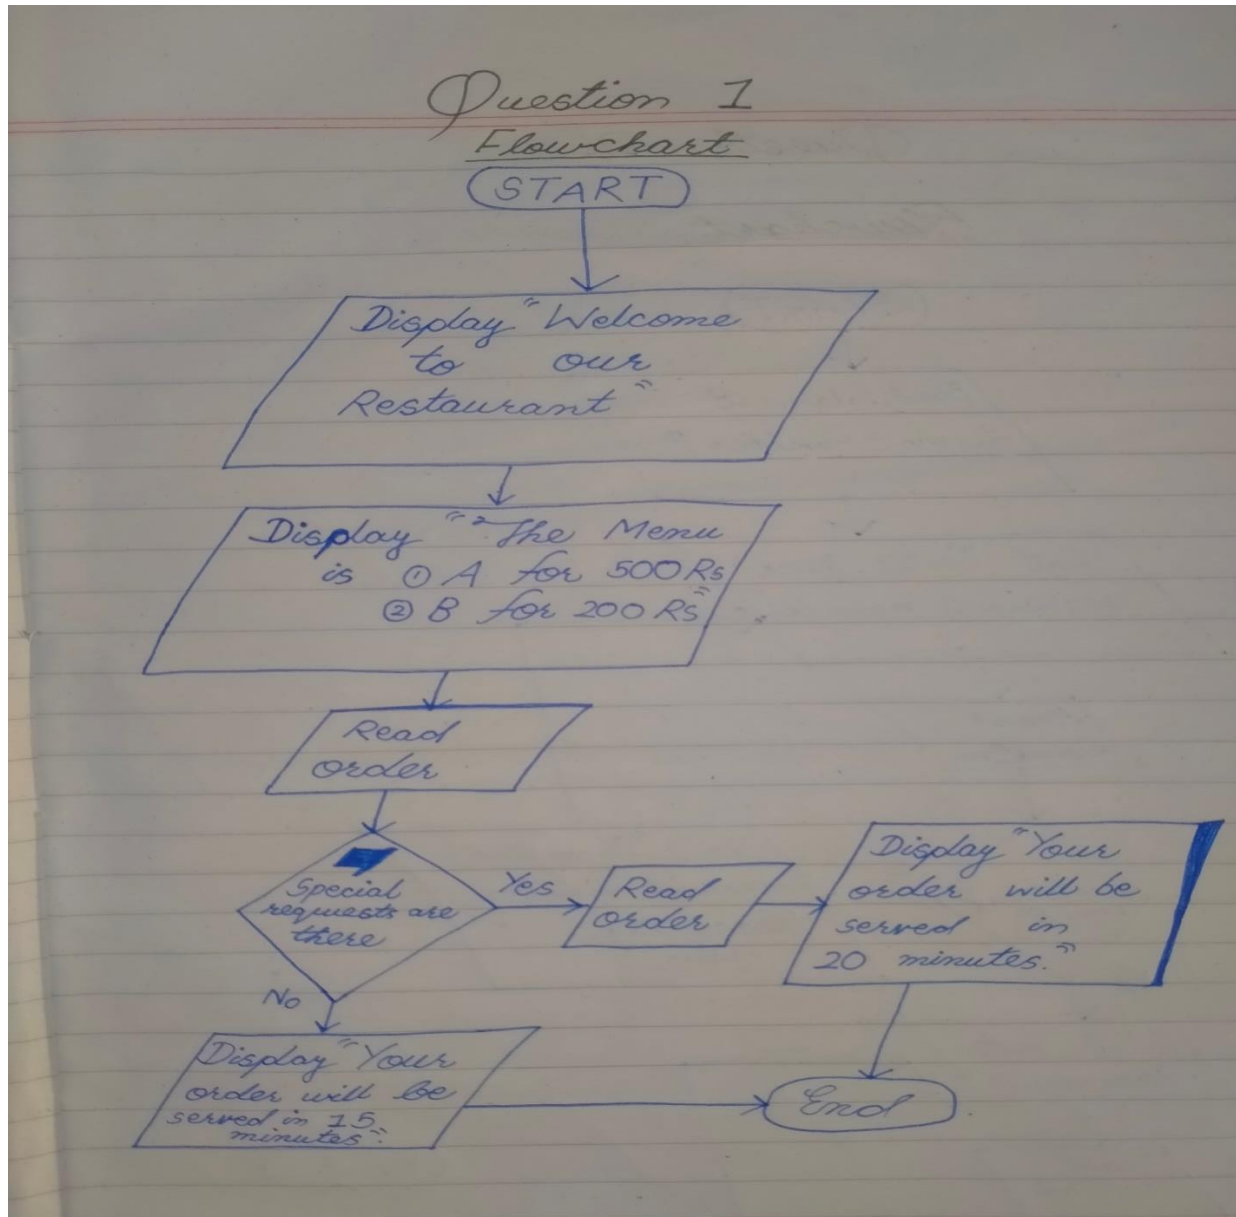 Question 1
Flowchart
START
Display "Welcome
to our
Restaurant"
Display "The Menu
is ① A for 500 Rs
② B for 200 Rs"
Read
order
Special
requests are
there
Yes
Read
order
Display "Your
order will be
served in
20 minutes."
No
Display "Your
order will be
served in 15
minutes".
End